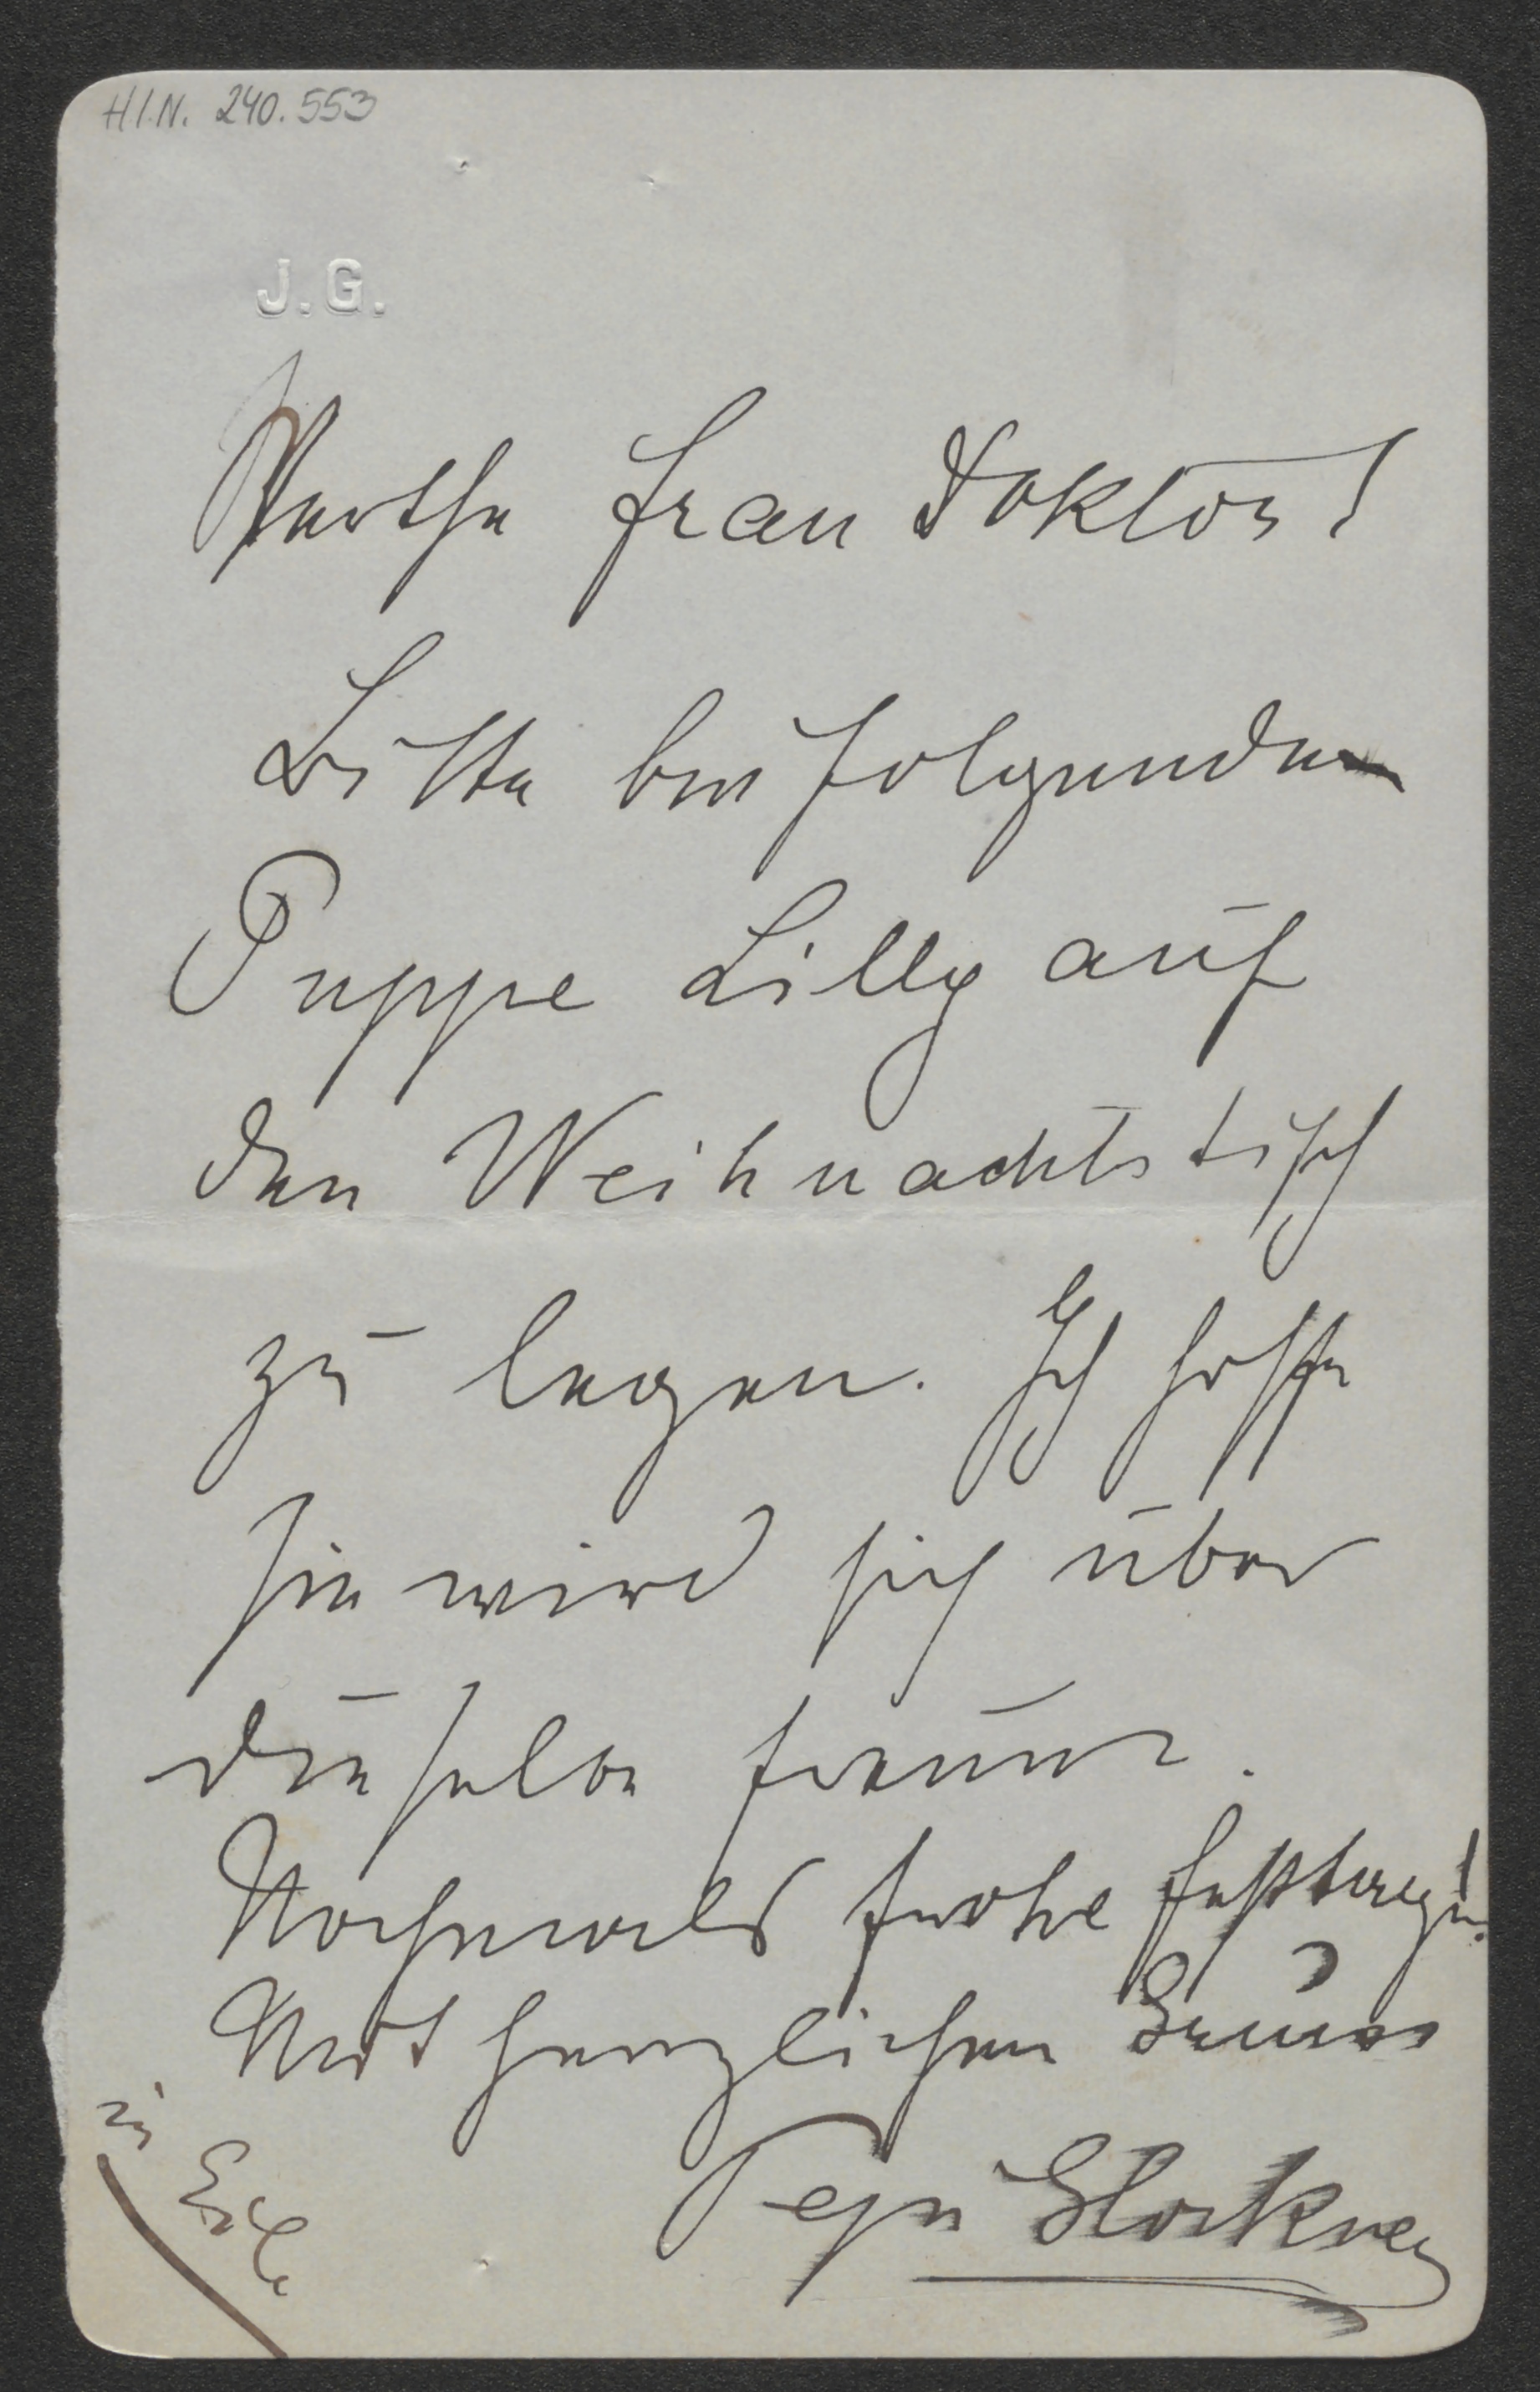 H.I.N. 240.553
J.G.
Werthe Frau Doktor!
Bitte beifolgende
Puppe Lilly auf
den Weihnachtstisch
zu legen. Ich hoffe
sie wird sich über
dieselbe freuen.
Nochmals frohe Festtage!
Mit herzlichen Gruss
Pepi Glöckner
in Eile